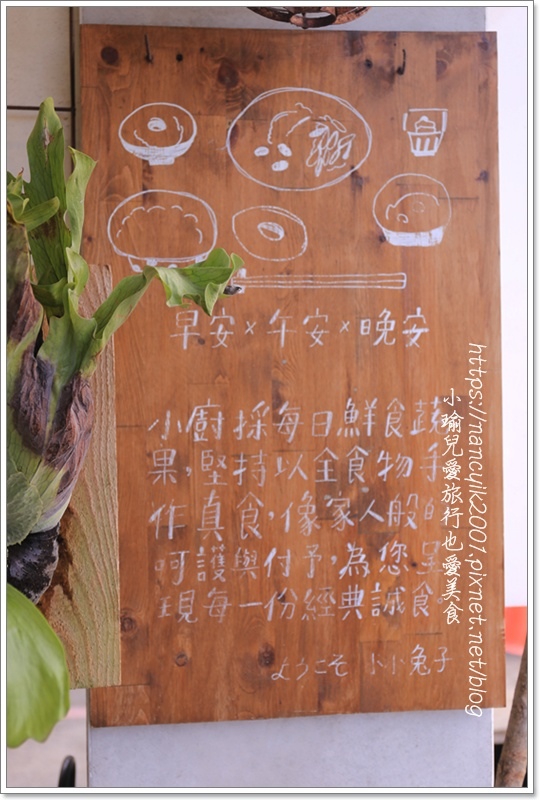 早安×午安×晚安
小廚採每日鮮食蔬
果,堅持以全食物手
作真食,像家人般的
呵護與付予,為您呈
現每一份經典誠食。
ようこそ 小小兔子
小瑜兒愛旅行也愛美食
https://nancyik2001.pixnet.net/blog